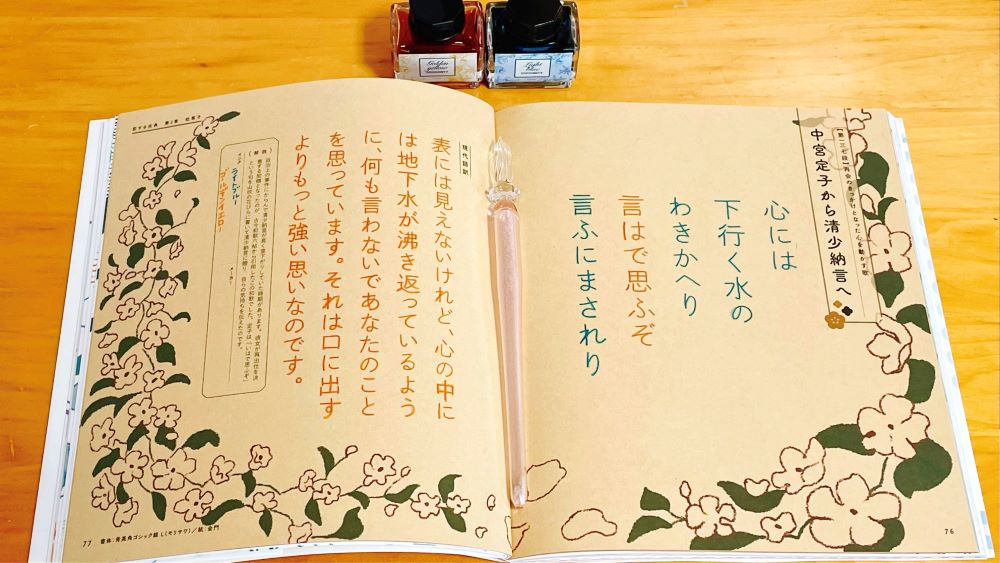 Golden
yellow
Light
blue
【第一三七段】再会のきっかけとなった心を動かす歌
中宮定子から清少納言へ
心には
下行く水の
わきかへり
言はで思ふぞ
言ふにまされり
76
現代語訳
表には見えないけれど、心の中に
は地下水が沸き返っているよう
に、何も言わないであなたのこと
を思っています。それは口に出す
よりもっと強い思いなのです。
解説
ライトブルー
ゴールデンイエロー
メーカー
恋する古典 第2章 枕草子
77
書体:秀英角ゴシック銀 L(モリサワ)/絵:金門